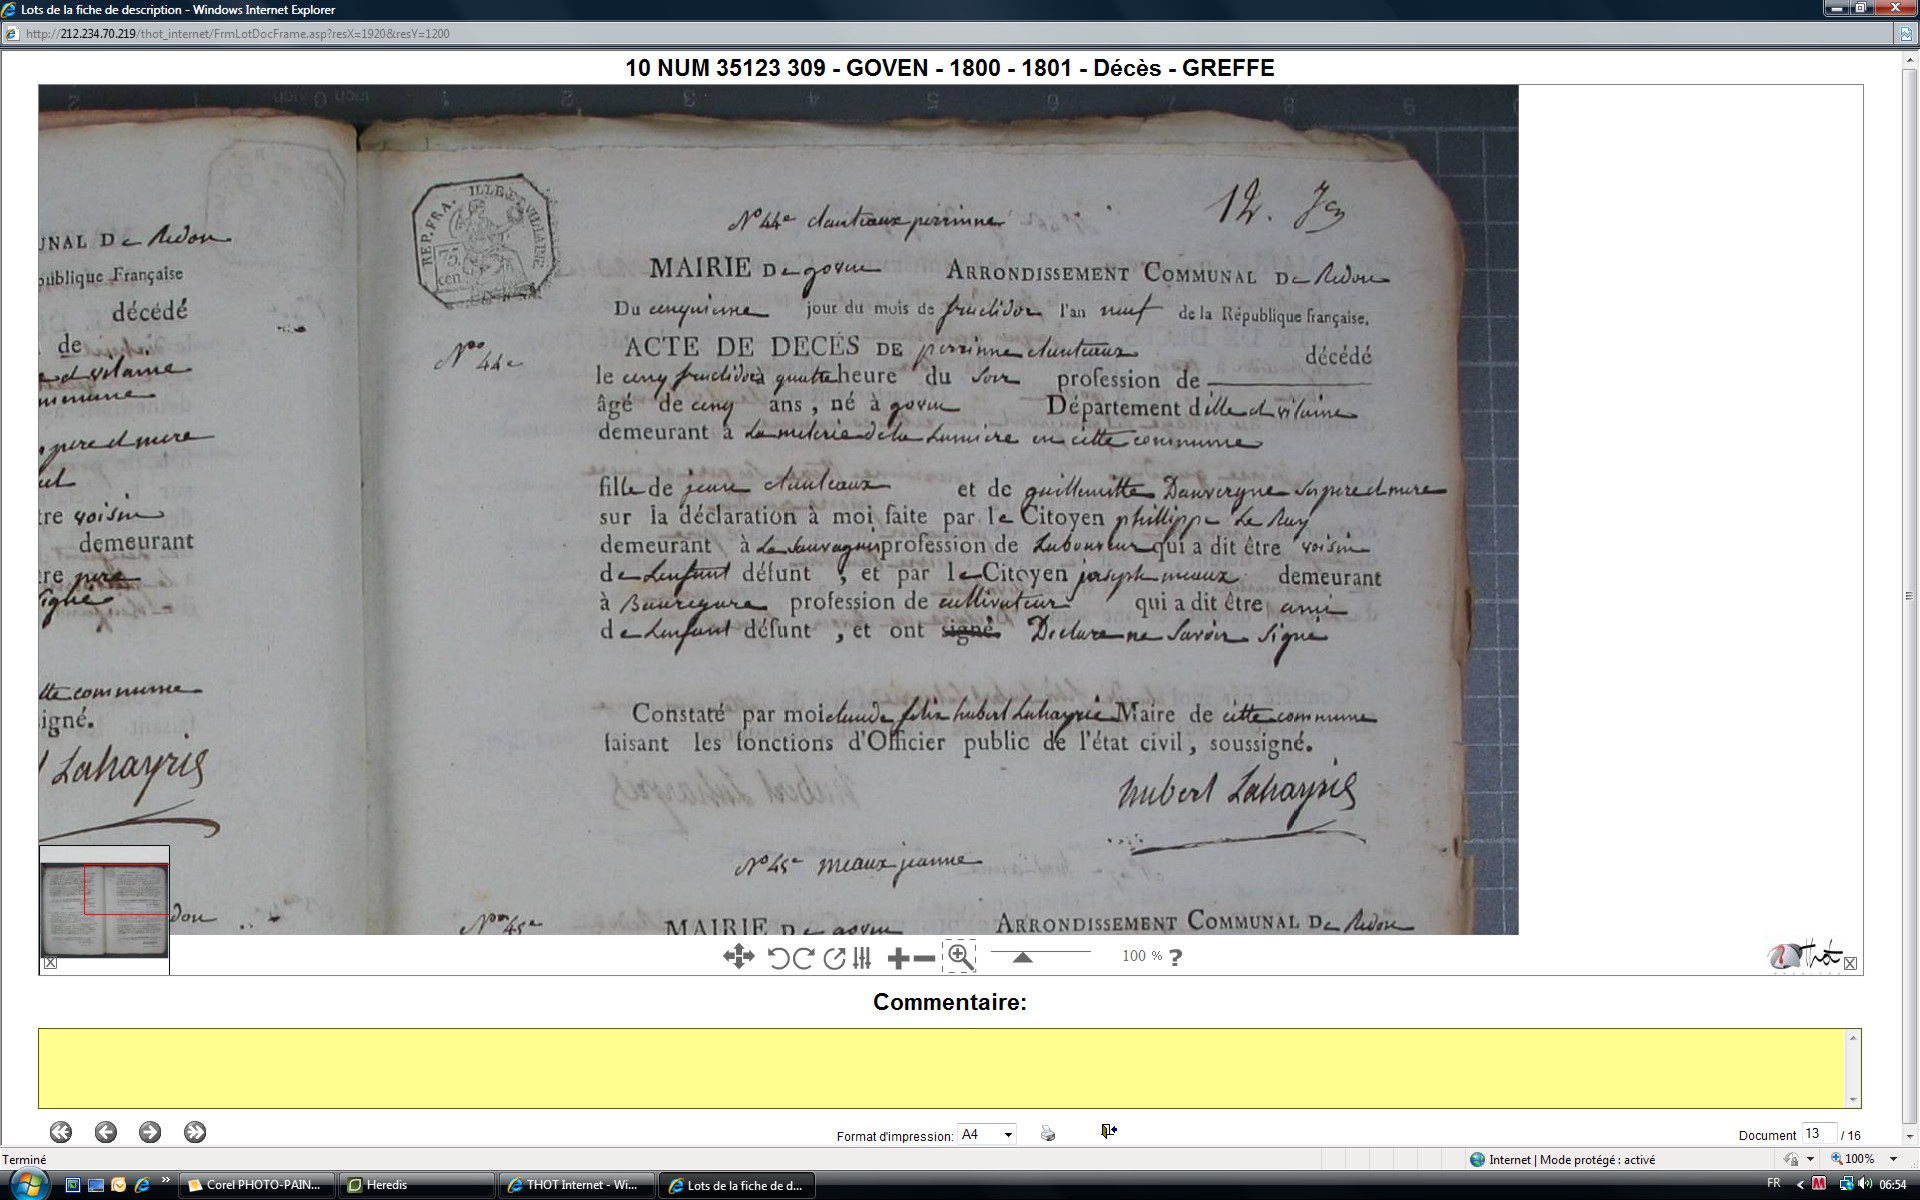 Lots de la fiche de description - Windows Internet Explorer
http://212.234.70.219/thot_internet/FrmLotDocFrame.asp?resX=1920&resY=1200
10 NUM 35123 309 - GOVEN - 1800 - 1801 - Décès - GREFFE
REP. FRA. ILLE ET VILAINE
75 cen
12.
N° 44e perrinne
MAIRIE De goven ARRONDISSEMENT COMMUNAL De Redon
Du cinquieme jour du mois de fructidor l'an neuf de la République française.
44e
ACTE DE DECÉS DE perrinne décédé
le cinq fructidor à quattre heure du soir profession de
âgé de cinq ans, né à goven Département dille et vilaine
demeurant à la meterie de la Lumiere en cette commune
fille de et de guillemitte Dauvergne ses pere et mere
sur la déclaration à moi faite par le Citoyen phillippe Le Ray
demeurant à profession de Laboureur qui a dit être voisin
de Lenfant défunt, et par le Citoyen joseph meaux demeurant
à Bauregare profession de cultivateur qui a dit être ami
de Lenfant défunt, et ont signé Declare ne Savoir Signé
Constaté par moi claude felix hubert Lahayris Maire de cette commune
faisant les fonctions d'Officier public de l'état civil, soussigné.
hubert Lahayris
N° 45e meaux jeanne
45e
MAIRIE De goven ARRONDISSEMENT COMMUNAL De Redon
UNAL De Redon
publique Française
décédé
de
et vilaine
commune
pere et mere
tre voisin
demeurant
tre pere
Signé
tte commune
igné.
Lahayris
don
100 % ?
Thot
Commentaire:
Format d'impression: A4
Document 13 / 16
Terminé
Internet | Mode protégé : activé
100%
Corel PHOTO-PAIN...
Heredis
THOT Internet - Wi...
Lots de la fiche de d...
FR
06:54